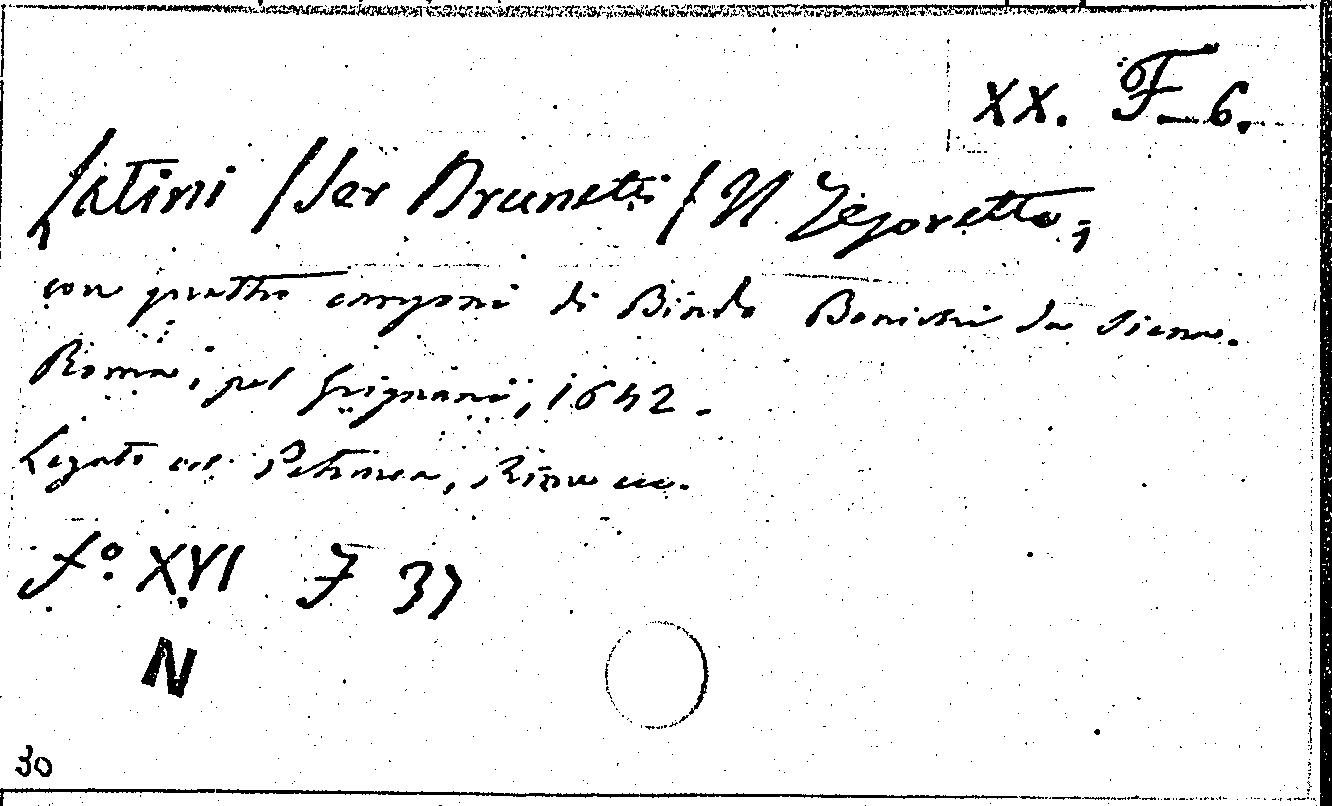 XX. F-6.
Latini (Ser Brunetti) Il Tesoretto,
con quattro canzoni di Bindo Bonichi da Siena.
Roma, pel Grignani, 1642.
Legato col Petrarca, Rime ecc.
f.º XVI F 37
N
30